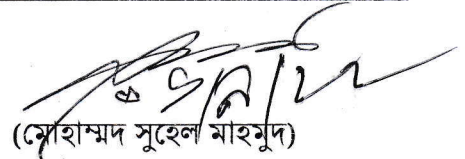 (মোহাম্মদ সুহেল মাহমুদ)